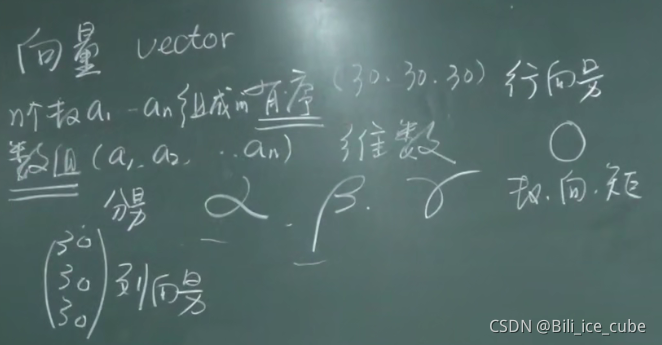 向量 vector
n个数a₁ - aₙ组成的有序 (30.30.30) 行向量
数组(a₁, a₂, ...aₙ) 维数 0
分量 α. β. γ 数.向.矩
(30
30
30) 列向量
CSDN @Bili_ice_cube